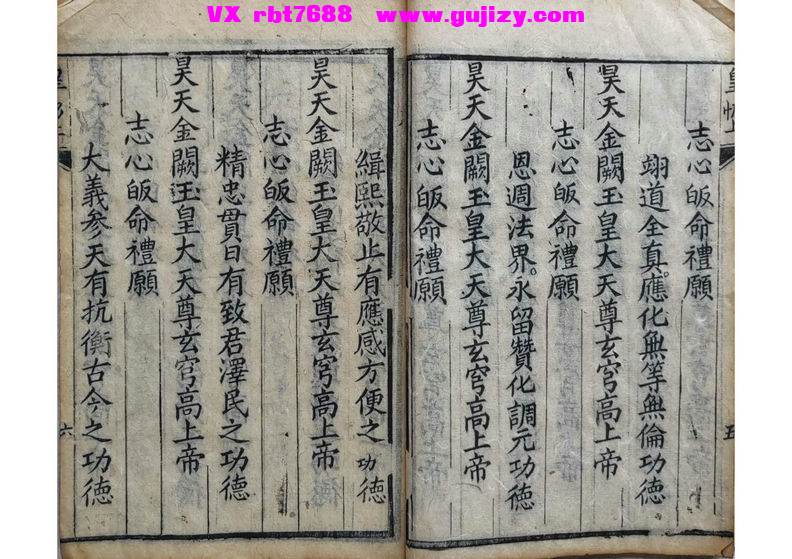 VX rbt7688 www.gujizy.com
志心皈命禮願
翊道全真。應化無等無倫功德
昊天金闕玉皇大天尊玄穹高上帝
志心皈命禮願
恩週法界。永留贊化調元功德
昊天金闕玉皇大天尊玄穹高上帝
志心皈命禮願
緝熙敬止有應感方便之功德
昊天金闕玉皇大天尊玄穹高上帝
志心皈命禮願
精忠貫日有致君澤民之功德
昊天金闕玉皇大天尊玄穹高上帝
志心皈命禮願
大義參天有抗衡古今之功德
六